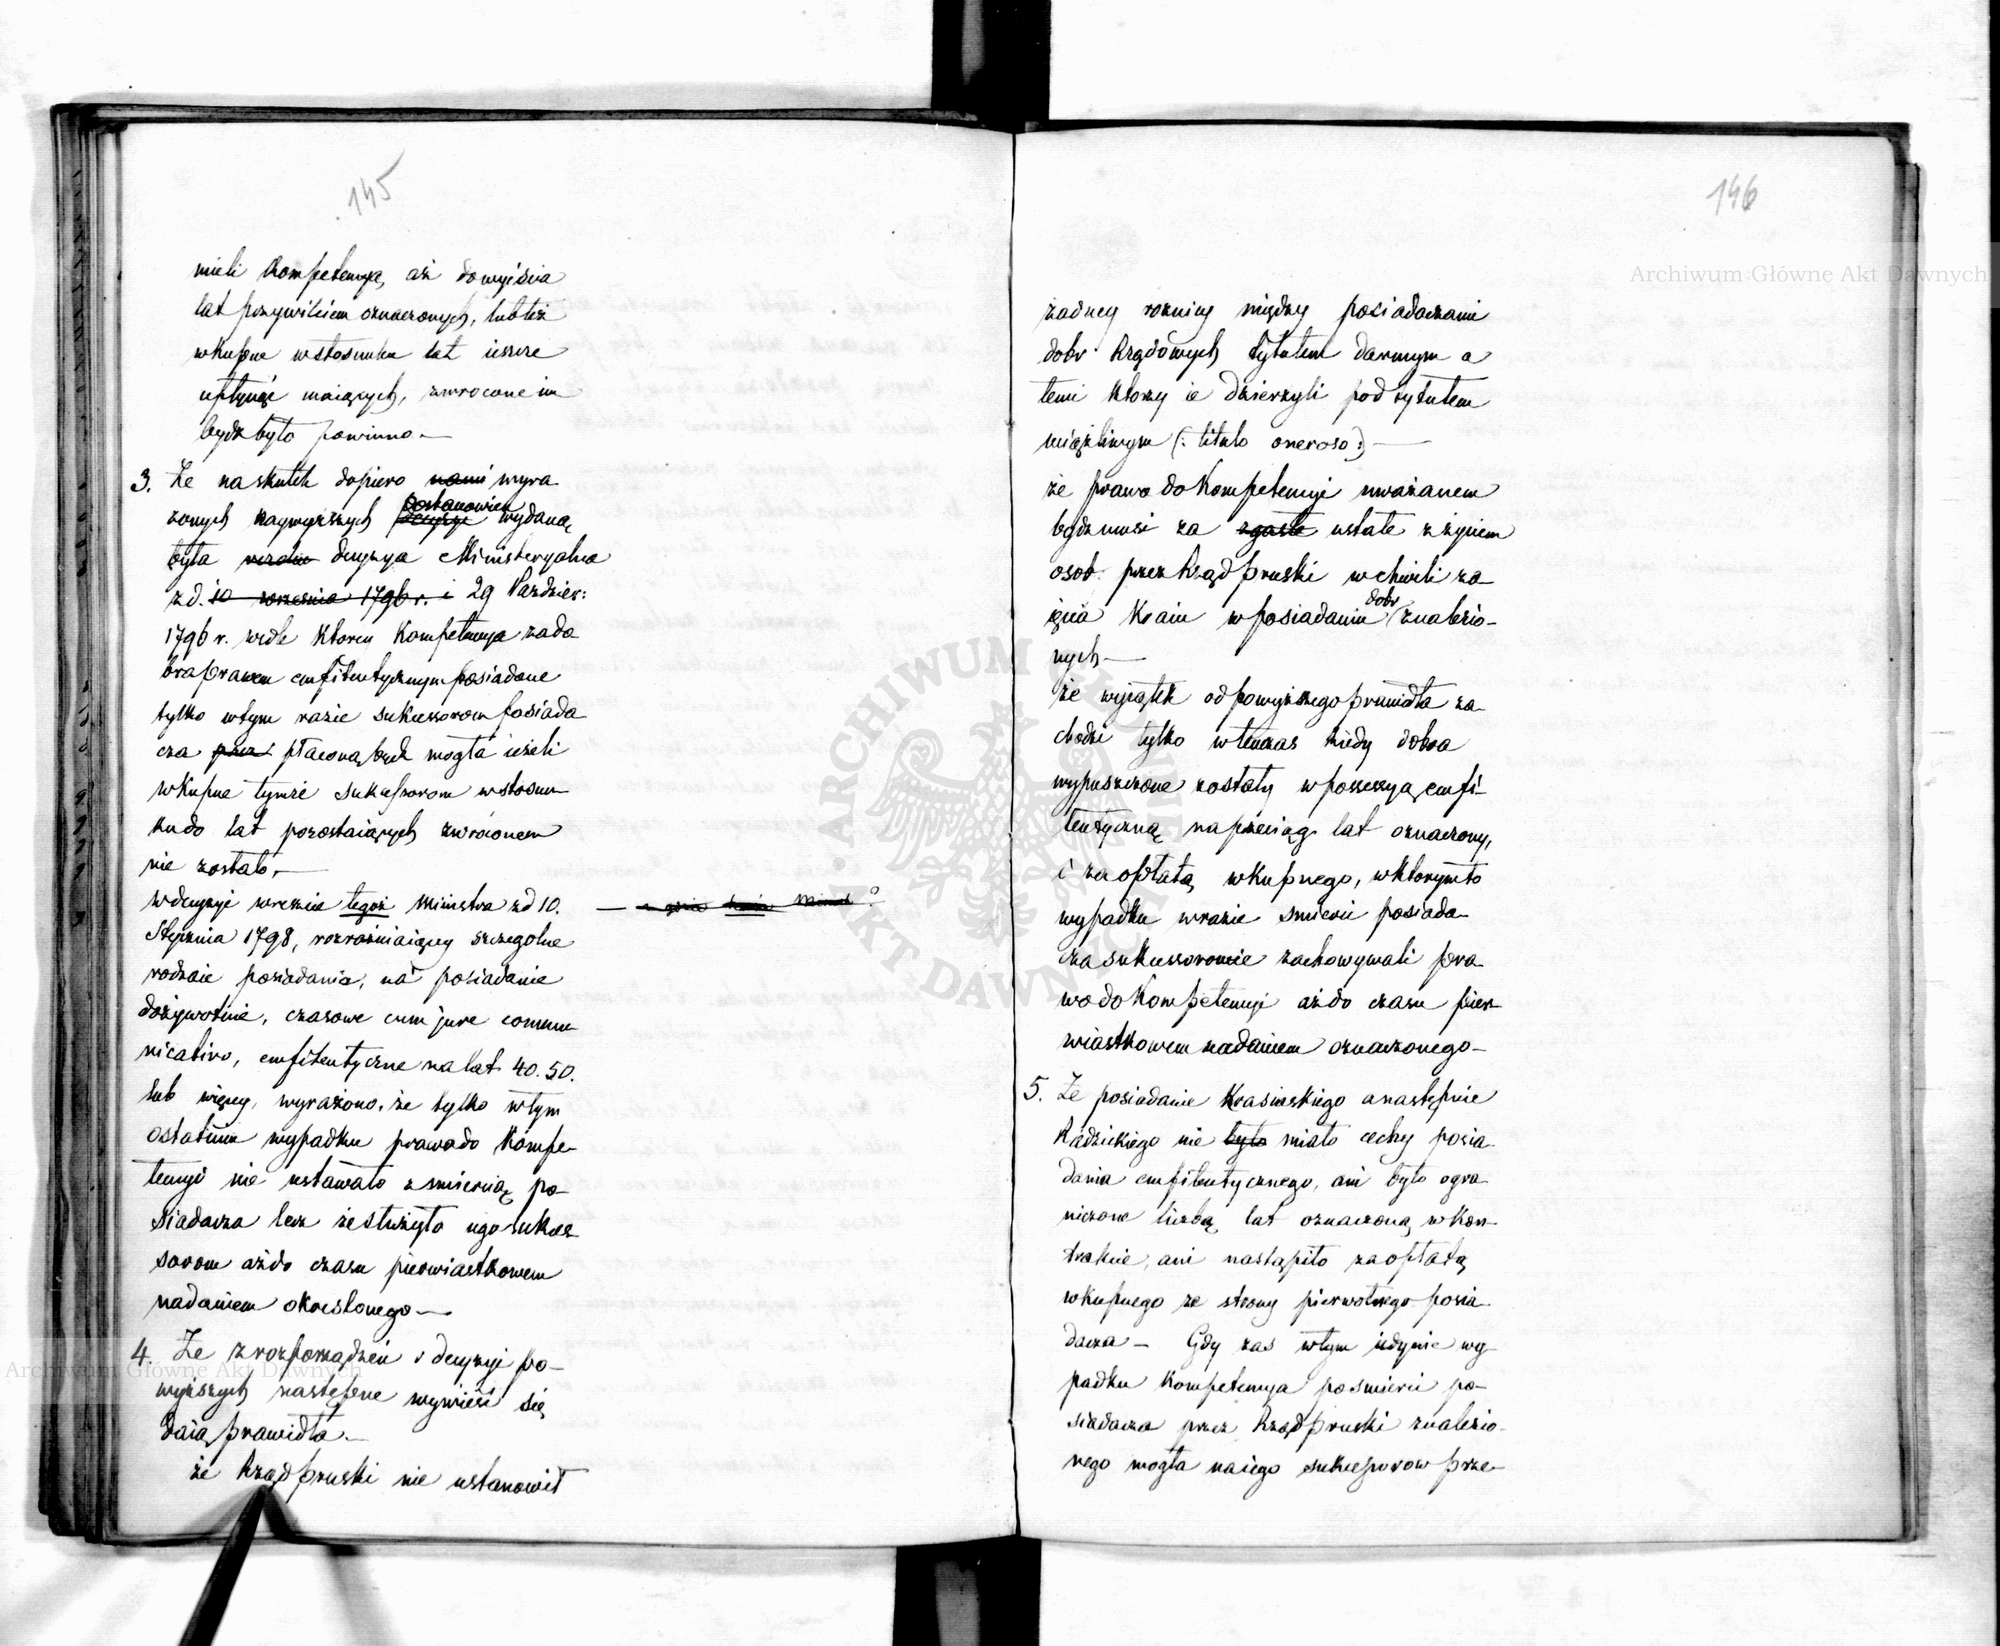 145
mieli Kompetencyą, aż do wyiścia
lat przywileiem oznaczonych, lub też
wkupne w stosunku lat ieszcze
upłynąć maiących, zwrocone im
bydź było powinno —
3. Że na skutek dopiero nami wyra
żonych naywyższych decyzyi postanowień wydaną
była decyzya Ministeryalna
z d. 10 września 1796 r. i 29 Paździer:
1796 r. wedle ktorey Kompetencya za do
bra prawem emfiteutycznym posiadane
tylko w tym razie sukcessorom posiada
cza płaconą bydź mogła ieżeli
wkupne tymże sukcessorom w stosun
ku do lat pozostaiących zwróconem
nie zostało. —
w decyzyi wreszcie tegoż Ministra z d 10.
Stycznia 1798, rozrożniaiącey szczegolne
rodzaie posiadania, na posiadanie
dożywotnie, czasowe cum jure commu
nicativo, emfiteutyczne na lat 40. 50.
lub więcey, wyrażono, że tylko w tym
ostatnim wypadku prawo do Kompe-
tencyi nie ustawało z śmiercią po-
siadacza lecz że służyło iego sukces
sorom aż do czasu pierwiastkowem
nadaniem okreslonego —
4. Że z rozporządzeń i decyzyi po-
wyższych następne wywieść się
daią prawidła —
że Rząd pruski nie ustanowił
146
żadney rożnicy między posiadaczami
dobr Rządowych tytułem darmym a
temi ktorzy ie dzierżyli pod tytułem
uciążliwym (: titulo oneroso :) —
że prawo do Kompetencyi uważanem
bydz musi za zgasłe ustałe z życiem
osob przez Rząd pruski w chwili za
ięcia Kraiu w posiadaniu dobr znalezio-
nych —
że wyiątek od powyższego prawidła za
chodzi tylko wtenczas kiedy dobra
wypuszczone zostały w possessyą emfi-
teutyczną na przeciąg lat oznaczony,
i za opłatą wkupnego, w ktorym to
wypadku w razie śmierci posiada-
cza sukcessorowie zachowywali pra
wo do Kompetencyi aż do czasu pier-
wiastkowem nadaniem oznaczonego —
5. Że posiadanie Krasińskiego a następnie
Radzickiego nie było miało cechy posia
dania emfiteutycznego, ani było ogra
niczone liczbą lat oznaczoną w kon-
trakcie, ani nastąpiło za opłatą
wkupnego ze strony pierwotnego posia
dacza — Gdy zas w tym iedynie wy
padku Kompetencya po śmierci po-
siadacza przez Rząd pruski znalezio-
nego mogła na iego sukcessorow prze-
Archiwum Główne Akt Dawnych
Archiwum Główne Akt Dawnych
ARCHIWUM GŁÓWNE AKT DAWNYCH